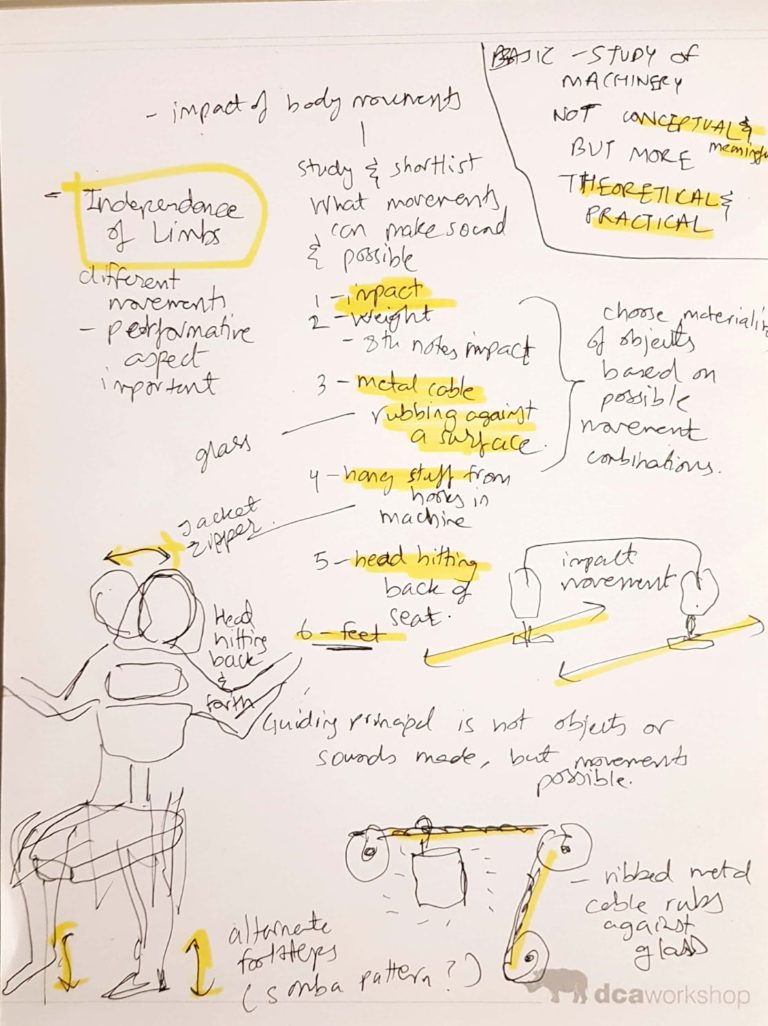 BASIC - STUDY OF
MACHINERY
NOT CONCEPTUAL &
meaningful
BUT MORE
THEORETICAL &
PRACTICAL
- impact of body movements
study & shortlist
What movements
can make sound
& possible
1 - impact
2 - weight
- 8th notes impact
3 - metal cable
rubbing against
a surface.
glass
4 - hang stuff from
hooks in
machine
Jacket
zipper.
5 - head hitting
back of
seat.
6 - feet
Independence
of Limbs
different
movements
- performative
aspect
important
choose materiality
of objects
based on
possible
movement
combinations.
impact
movement
Head
hitting
back
&
forth
Guiding principal is not objects or
sounds made, but movements
possible.
- ribbed metal
cable rubs
against
glass
alternate
footsteps
(samba pattern?)
dcaworkshop